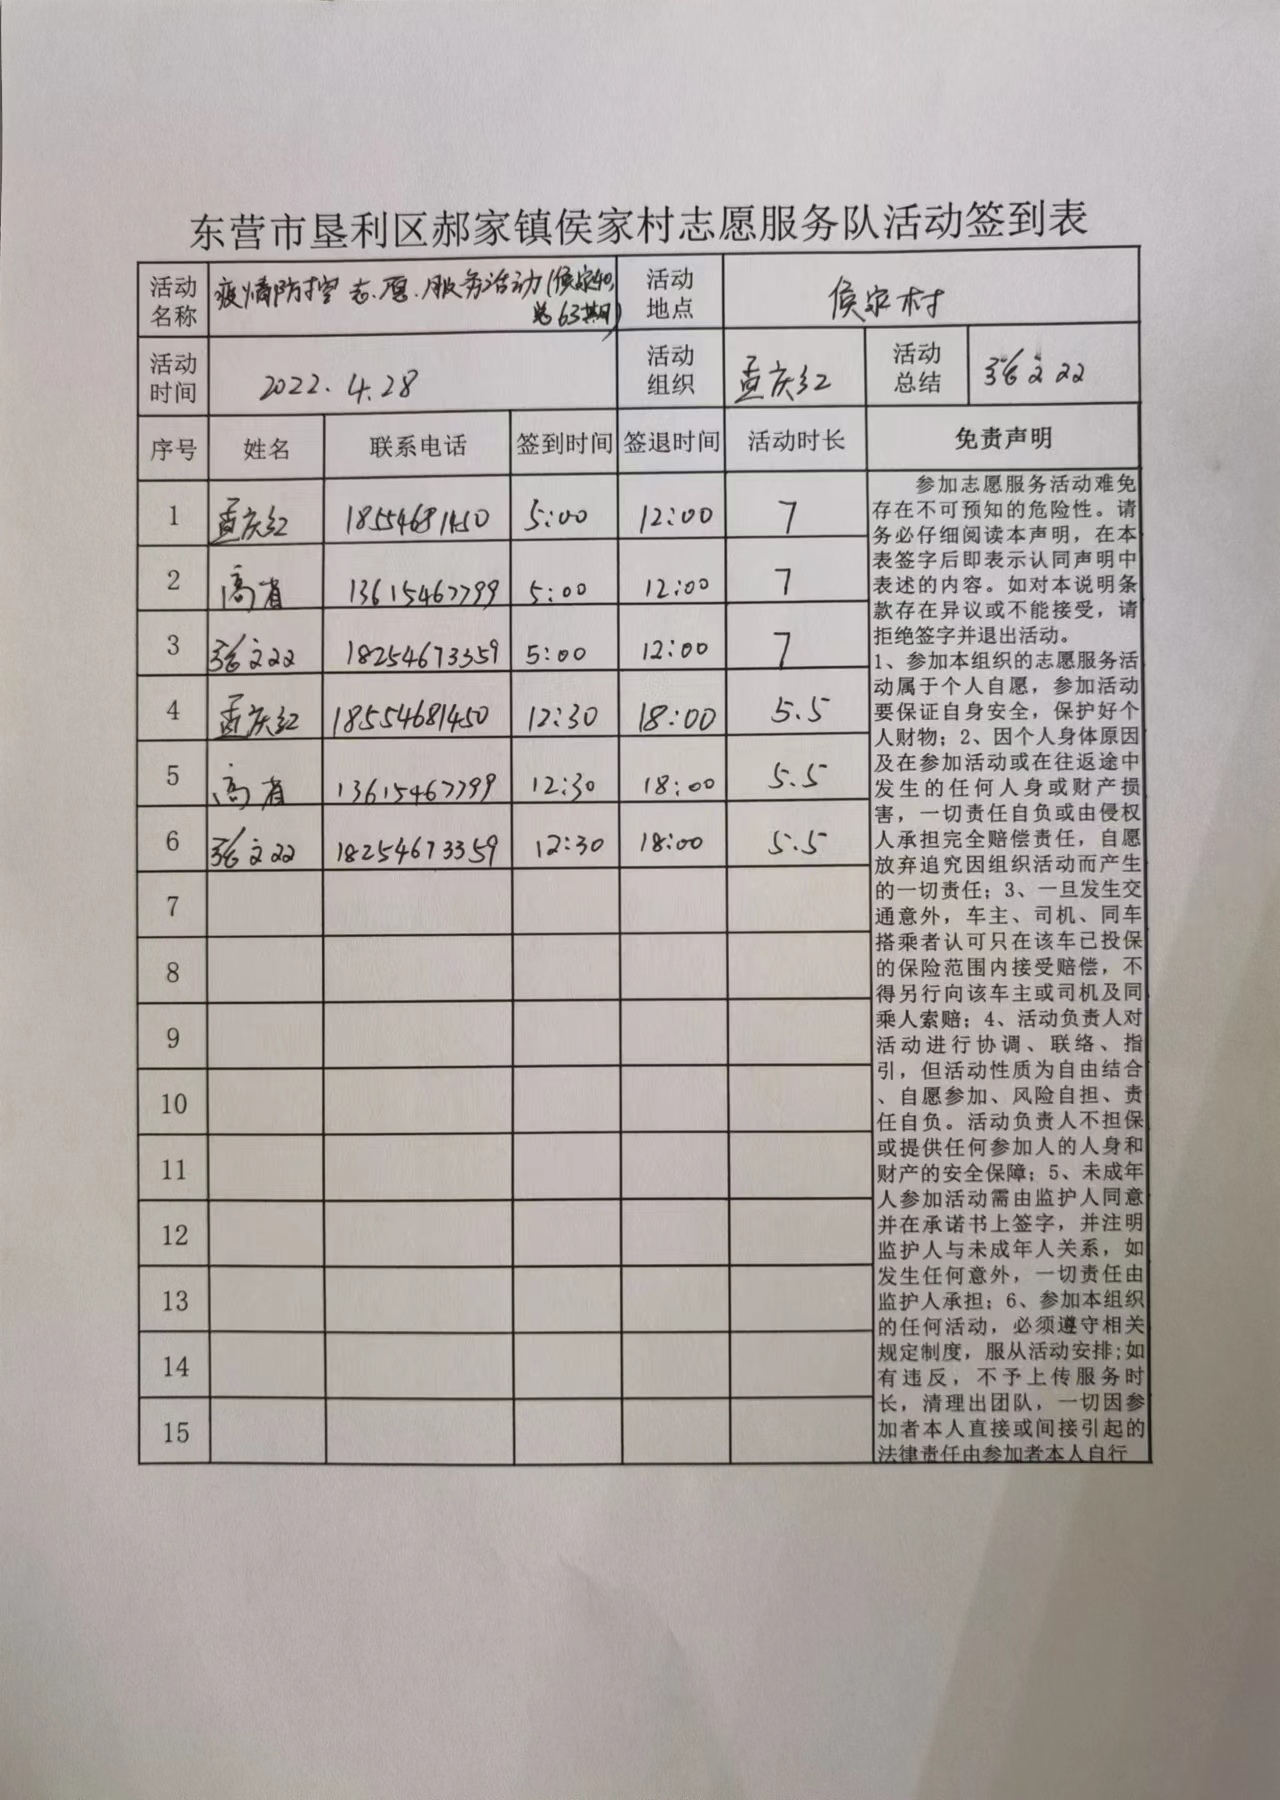 东营市垦利区郝家镇侯家村志愿服务队活动签到表
活动名称 疫情防控志愿服务活动(侯家40,总63期) 活动地点 侯家村
活动时间 2022.4.28 活动组织 孟庆红 活动总结 张文双
序号 姓名 联系电话 签到时间 签退时间 活动时长 免责声明
1 孟庆红 18554681450 5:00 12:00 7
2 高省 13615467799 5:00 12:00 7
3 张文双 18254673359 5:00 12:00 7
4 孟庆红 18554681450 12:30 18:00 5.5
5 高省 13615467799 12:30 18:00 5.5
6 张文双 18254673359 12:30 18:00 5.5
7
8
9
10
11
12
13
14
15
参加志愿服务活动难免
存在不可预知的危险性。请
务必仔细阅读本声明，在本
表签字后即表示认同声明中
表述的内容。如对本说明条
款存在异议或不能接受，请
拒绝签字并退出活动。
1、参加本组织的志愿服务活
动属于个人自愿，参加活动
要保证自身安全，保护好个
人财物；2、因个人身体原因
及在参加活动或在往返途中
发生的任何人身或财产损
害，一切责任自负或由侵权
人承担完全赔偿责任，自愿
放弃追究因组织活动而产生
的一切责任；3、一旦发生交
通意外，车主、司机、同车
搭乘者认可只在该车已投保
的保险范围内接受赔偿，不
得另行向该车主或司机及同
乘人索赔；4、活动负责人对
活动进行协调、联络、指
引，但活动性质为自由结合
、自愿参加、风险自担、责
任自负。活动负责人不担保
或提供任何参加人的人身和
财产的安全保障；5、未成年
人参加活动需由监护人同意
并在承诺书上签字，并注明
监护人与未成年人关系，如
发生任何意外，一切责任由
监护人承担；6、参加本组织
的任何活动，必须遵守相关
规定制度，服从活动安排;如
有违反，不予上传服务时
长，清理出团队，一切因参
加者本人直接或间接引起的
法律责任由参加者本人自行